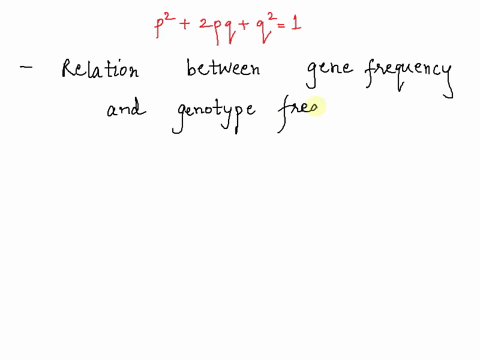 p² + 2pq + q² = 1
- Relation between gene frequency
and genotype freq